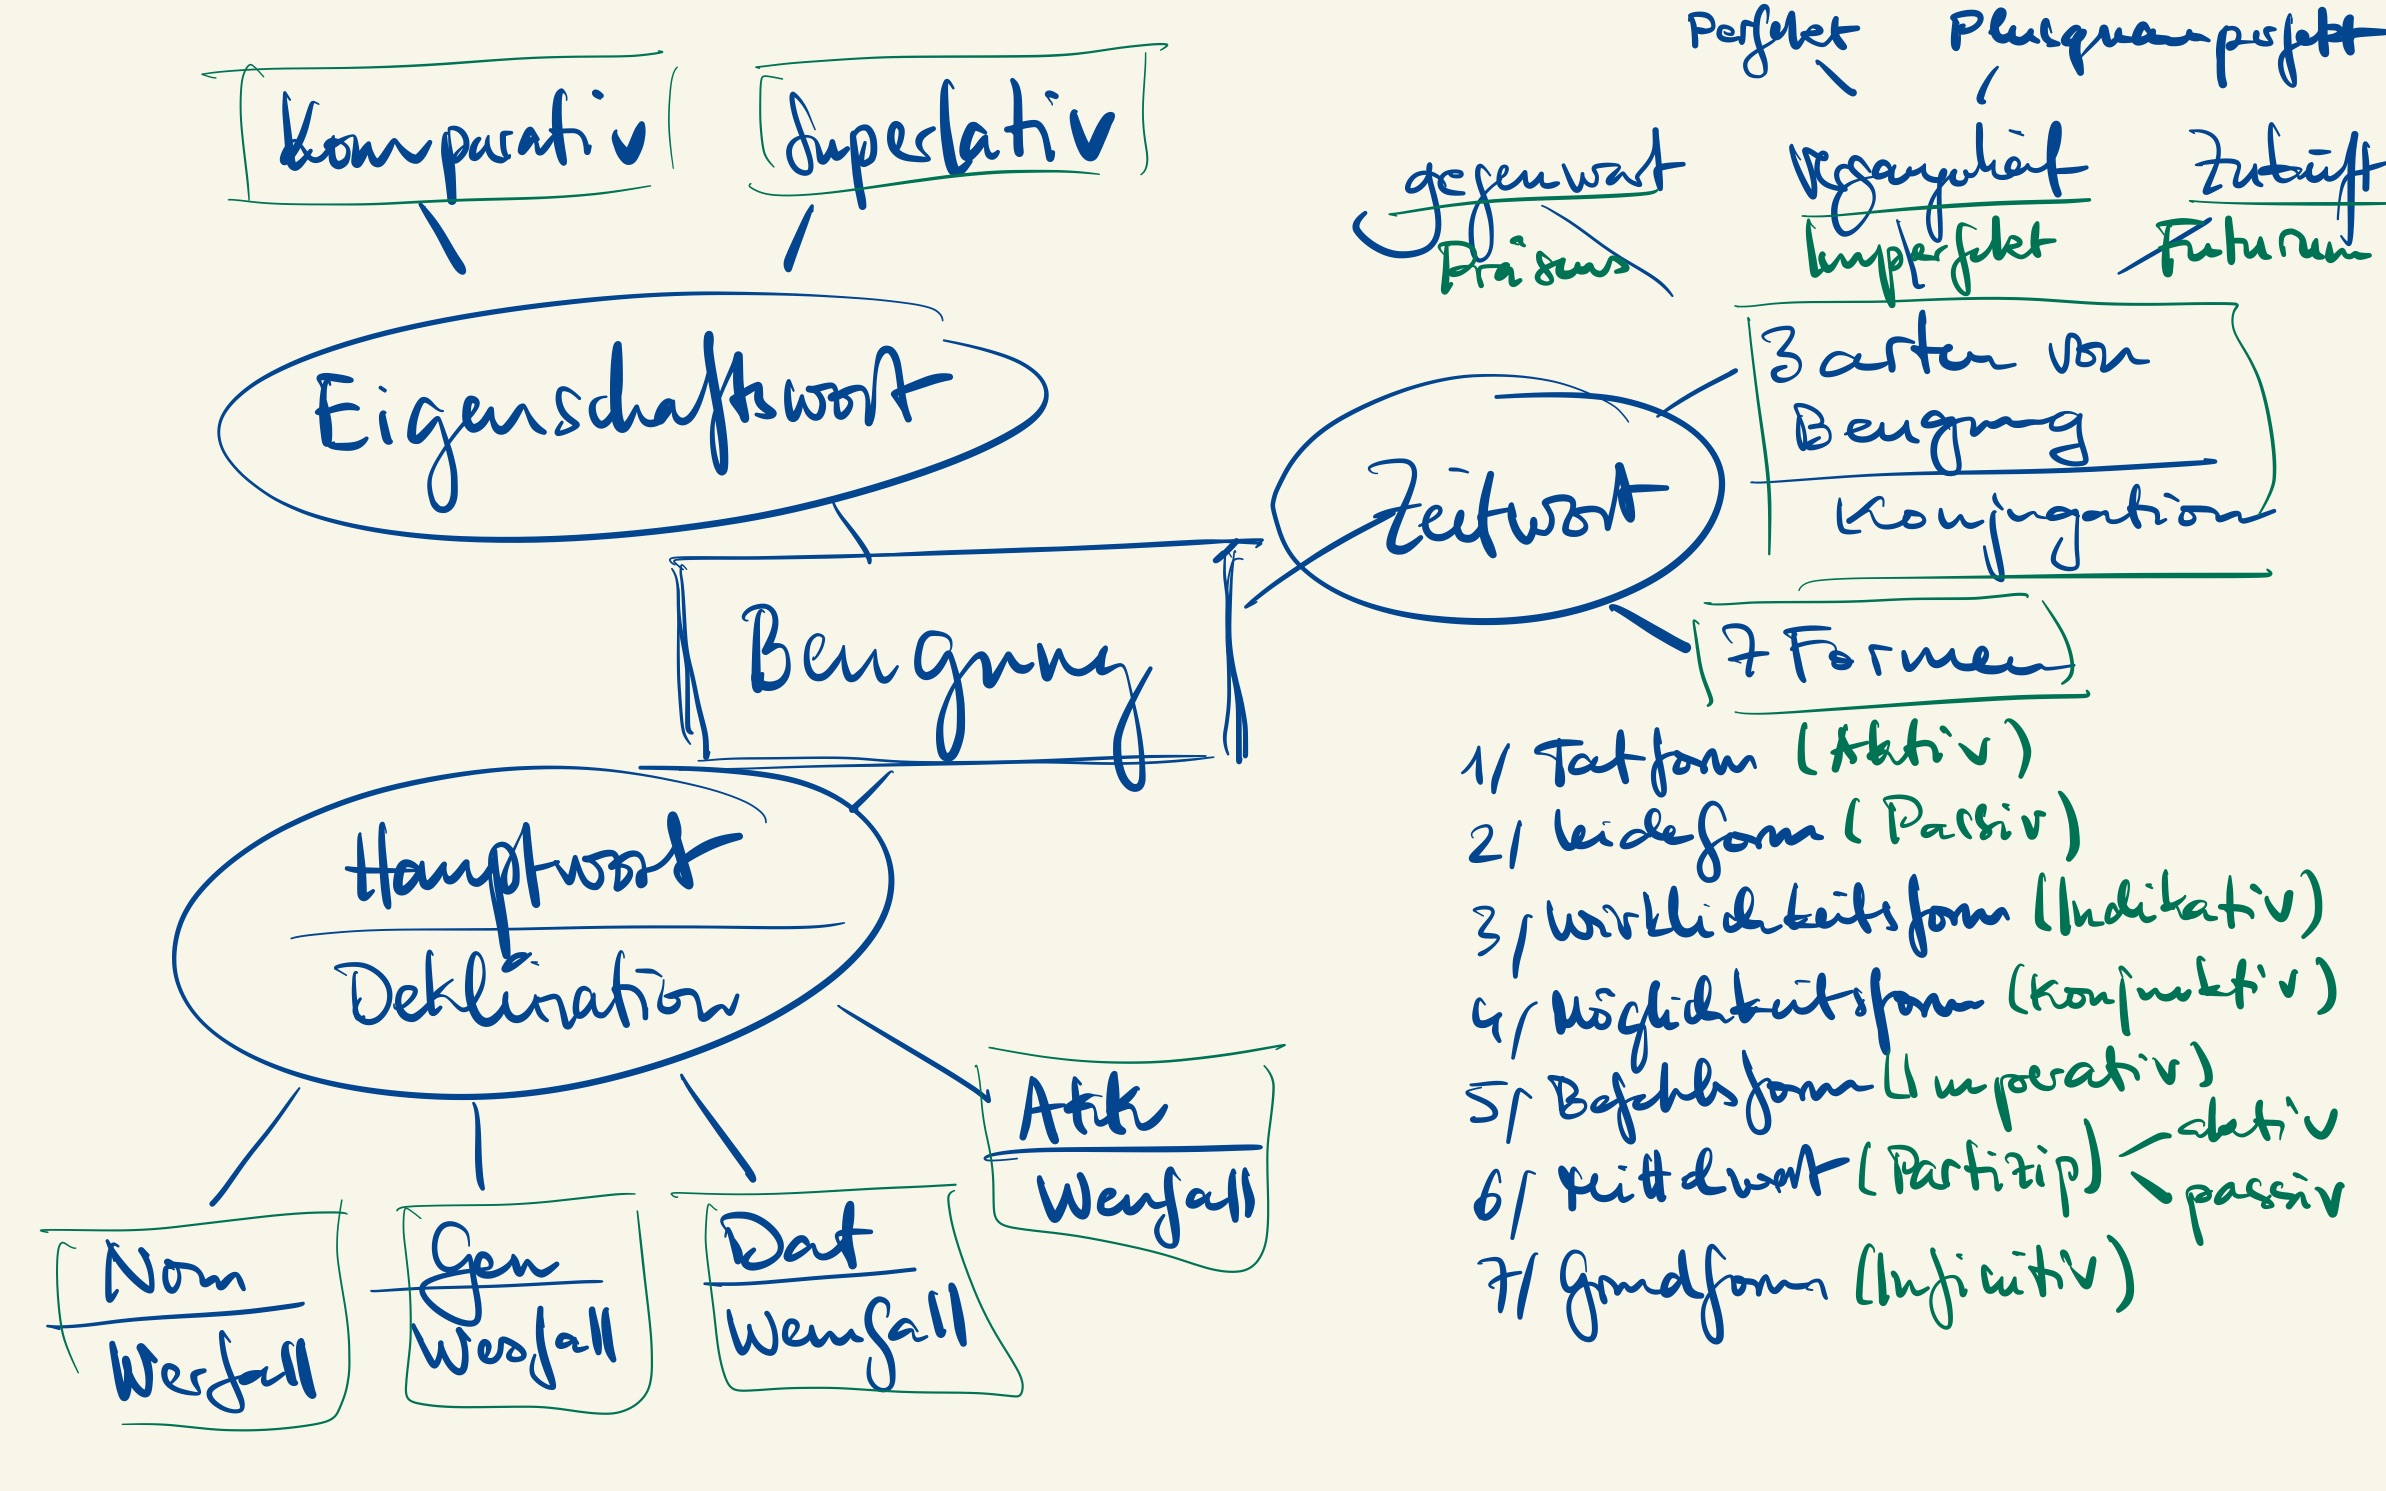 Komparativ
Superlativ
Eigenschaftswort
Beugung
Hauptwort
Deklination
Nom
Werfall
Gen
Wesfall
Dat
Wemfall
Akk
Wenfall
Perfekt
Plusquamperfekt
Gegenwart
Präsens
Vergangenheit
Imperfekt
Zukunft
Futurum
Zeitwort
3 arten von
Beugung
Konjugation
7 Formen
1/ Tatform (Aktiv)
2/ Leideform (Passiv)
3/ Wirklichkeitsform (Indikativ)
4/ Möglichkeitsform (Konjunktiv)
5/ Befehlsform (Imperativ)
6/ Mittelwort (Partizip)
aktiv
passiv
7/ Grundform (Infinitiv)